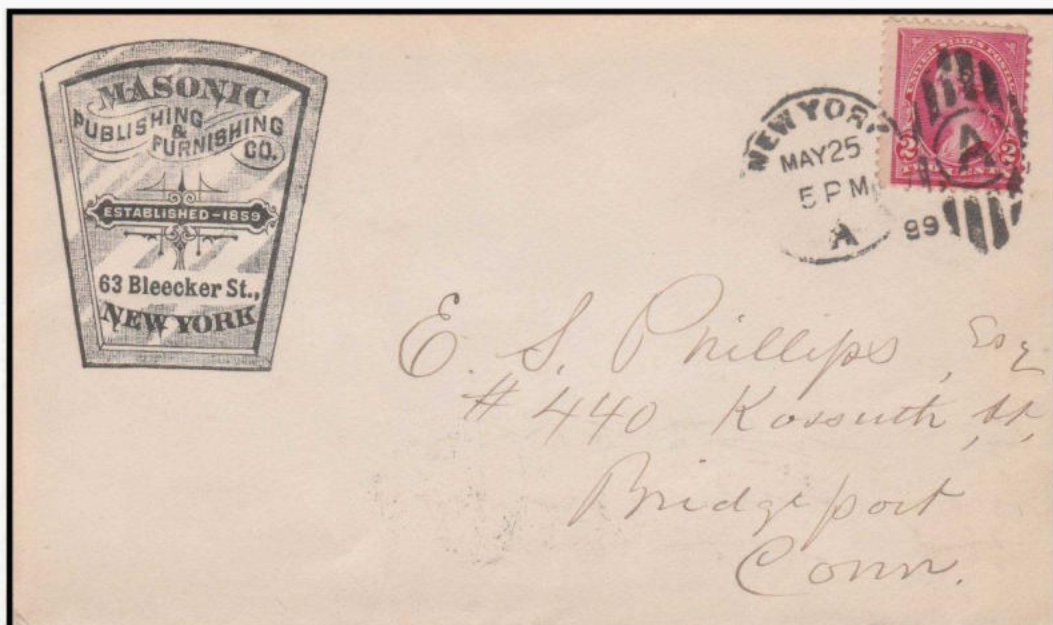 MASONIC
PUBLISHING
&
FURNISHING
CO.
ESTABLISHED-1859
63 Bleecker St.,
NEW YORK
NEW YORK
MAY 25
5 PM
A
99
UNITED STATES POSTAGE
2 2
A
E. S. Phillips, Esq
# 440 Kossuth St,
Bridgeport
Conn.